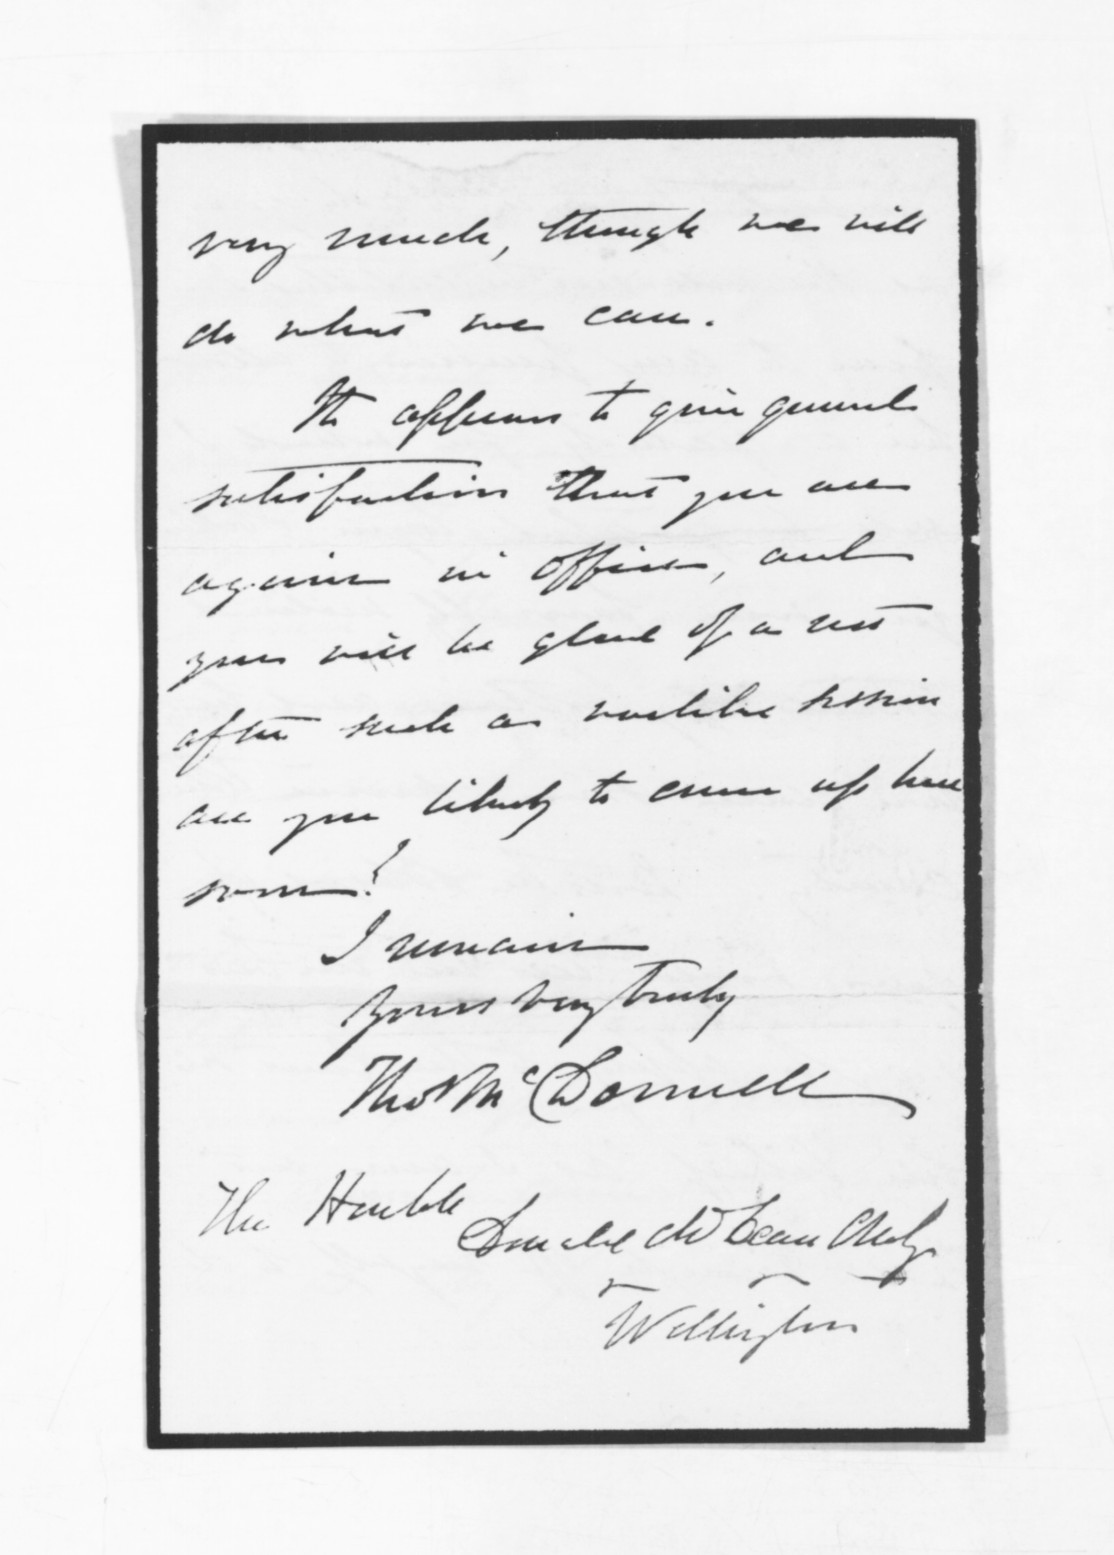 very much, though we will
do what we can.
It appears to give general
satisfaction that you are
again in office, and
you will be glad of a rest
after such a warlike session
are you likely to come up here
soon?
I remain
Yours very truly
Thos McDonnell
The Honble
Donald McLean
Wellington